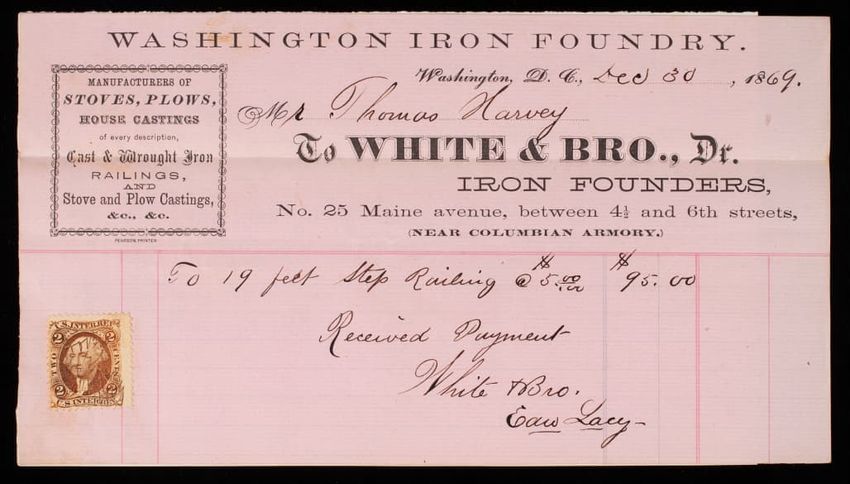 WASHINGTON IRON FOUNDRY.
Washington, D. C., Dec 30, 1869.
MANUFACTURERS OF
STOVES, PLOWS,
HOUSE CASTINGS
of every description,
Cast & Wrought Iron
RAILINGS,
AND
Stove and Plow Castings,
&c., &c.
PEARSON, PRINTER
Mr Thomas Harvey
To WHITE & BRO., Dr.
IRON FOUNDERS,
No. 25 Maine avenue, between 4½ and 6th streets,
(NEAR COLUMBIAN ARMORY.)
To 19 feet Step Railing @ $5.00/100 $95.00
Received Payment
White & Bro.
Edw Lacy
U.S. INTER. REV.
2 2
TWO CENTS
2 2
U.S. INTER. REV.